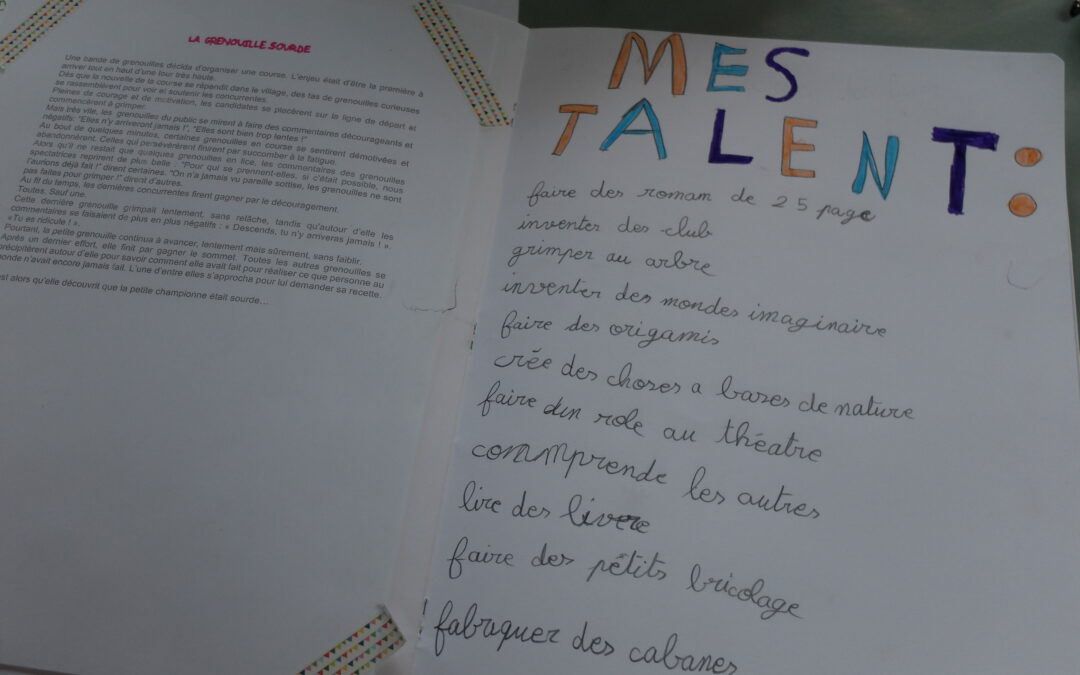 LA GRENOUILLE SOURDE
Une bande de grenouilles décida d'organiser une course. L'enjeu était d'être la première à
arriver tout en haut d'une tour très haute.
Dès que la nouvelle de la course se répandit dans le village, des tas de grenouilles curieuses
se rassemblèrent pour voir et soutenir les concurrentes.
Pleines de courage et de motivation, les candidates se placèrent sur la ligne de départ et
commencèrent à grimper.
Mais très vite, les grenouilles du public se mirent à faire des commentaires décourageants et
négatifs: "Elles n'y arriveront jamais !", "Elles sont bien trop lentes !"
Au bout de quelques minutes, certaines grenouilles en course se sentirent démotivées et
abandonnèrent. Celles qui persévérèrent finrent par succomber à la fatigue.
Alors qu'il ne restait que quelques grenouilles en lice, les commentaires des grenouilles
spectatrices reprirent de plus belle : "Pour qui se prennent-elles, si c'était possible, nous
l'aurions déjà fait !" dirent certaines. "On n'a jamais vu pareille sottise, les grenouilles ne sont
pas faites pour grimper !" dirent d'autres.
Au fil du temps, les dernières concurrentes firent gagner par le découragement.
Toutes. Sauf une.
Cette dernière grenouille grimpait lentement, sans relâche, tandis qu'autour d'elle les
commentaires se faisaient de plus en plus négatifs : « Descends, tu n'y arriveras jamais ! ».
«Tu es ridicule ! ».
Pourtant, la petite grenouille continua à avancer, lentement mais sûrement, sans faiblir.
Après un dernier effort, elle finit par gagner le sommet. Toutes les autres grenouilles se
précipitèrent autour d'elle pour savoir comment elle avait fait pour réaliser ce que personne au
monde n'avait encore jamais fait. L'une d'entre elles s'approcha pour lui demander sa recette.
est alors qu'elle découvrit que la petite championne était sourde…
MES
TALENT:
faire des romam de 25 page
inventer des club
grimper au arbre
inventer des mondes imaginaire
faire des origamis
crée des choses a bases de nature
faire dun role au théatre
commprende les autres
lire des livere
faire des pétits bricolage
fabriquer des cabanes